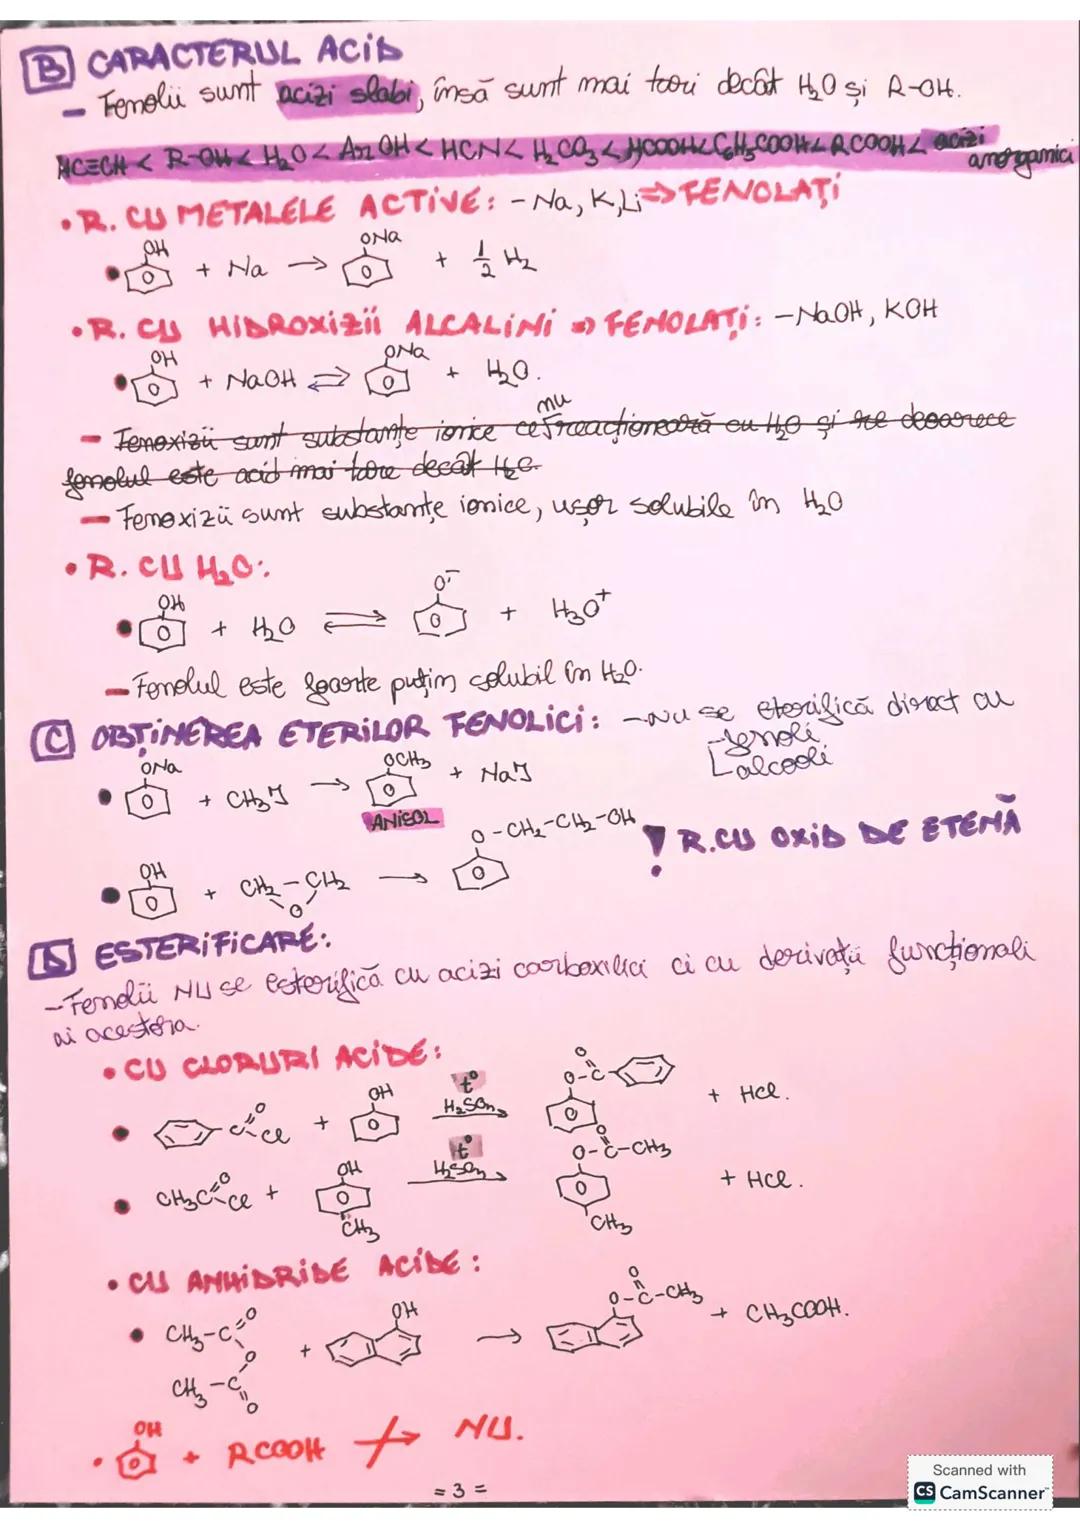 B CARACTERUL ACID
- Fenolii sunt acizi slabi, însă sunt mai tari decât H₂O și R-OH.
HC≡CH < R-OH < H₂O < Ar OH < HCN < H₂CO₃ < HCOOH < C₆H₅COOH < RCOOH < acizi anorganici
• R. CU METALELE ACTIVE: - Na, K, Li => FENOLAȚI
OH + Na → ONa + 1/2 H₂
• R. CU HIDROXIZII ALCALINI => FENOLAȚI: - NaOH, KOH
OH + NaOH ⇌ ONa + H₂O.
nu
- Fenoxizii sunt substanțe ionice ce reacționează cu H₂O și deoarece
fenolul este acid mai tare decât H₂O.
- Fenoxizii sunt substanțe ionice, ușor solubile în H₂O
• R. CU H₂O:
OH + H₂O ⇌ O⁻ + H₃O⁺
- Fenolul este foarte puțin solubil în H₂O.
C OBȚINEREA ETERILOR FENOLICI: - Nu se eterifică direct cu
- fenoli
- alcooli
ONa + CH₃I → OCH₃ + NaI
ANISOL
OH + CH₂-CH₂ O → O-CH₂-CH₂-OH
! R.CU OXID DE ETENĂ
D ESTERIFICARE:
- Fenolii NU se esterifică cu acizi carboxilici ci cu derivații funcționali
ai acestora.
• CU CLORURI ACIDE:
C=O Cl + OH t° H₂SO₄ → O-C=O + HCl.
CH₃C=O Cl + OH CH₃ t° H₂SO₄ → O-C=O-CH₃ CH₃ + HCl.
• CU ANHIDRIDE ACIDE:
CH₃-C=O O CH₃-C=O + OH → O-C=O-CH₃ + CH₃COOH.
• OH + RCOOH ↛ NU.
= 3 =
Scanned with
CS CamScanner™